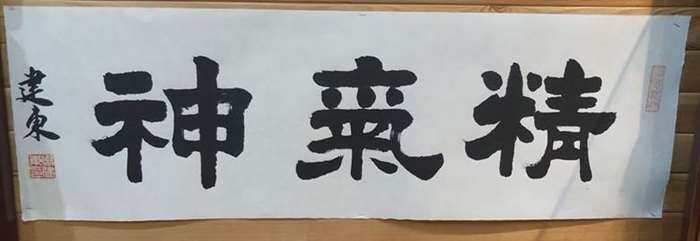 精氣神
建東